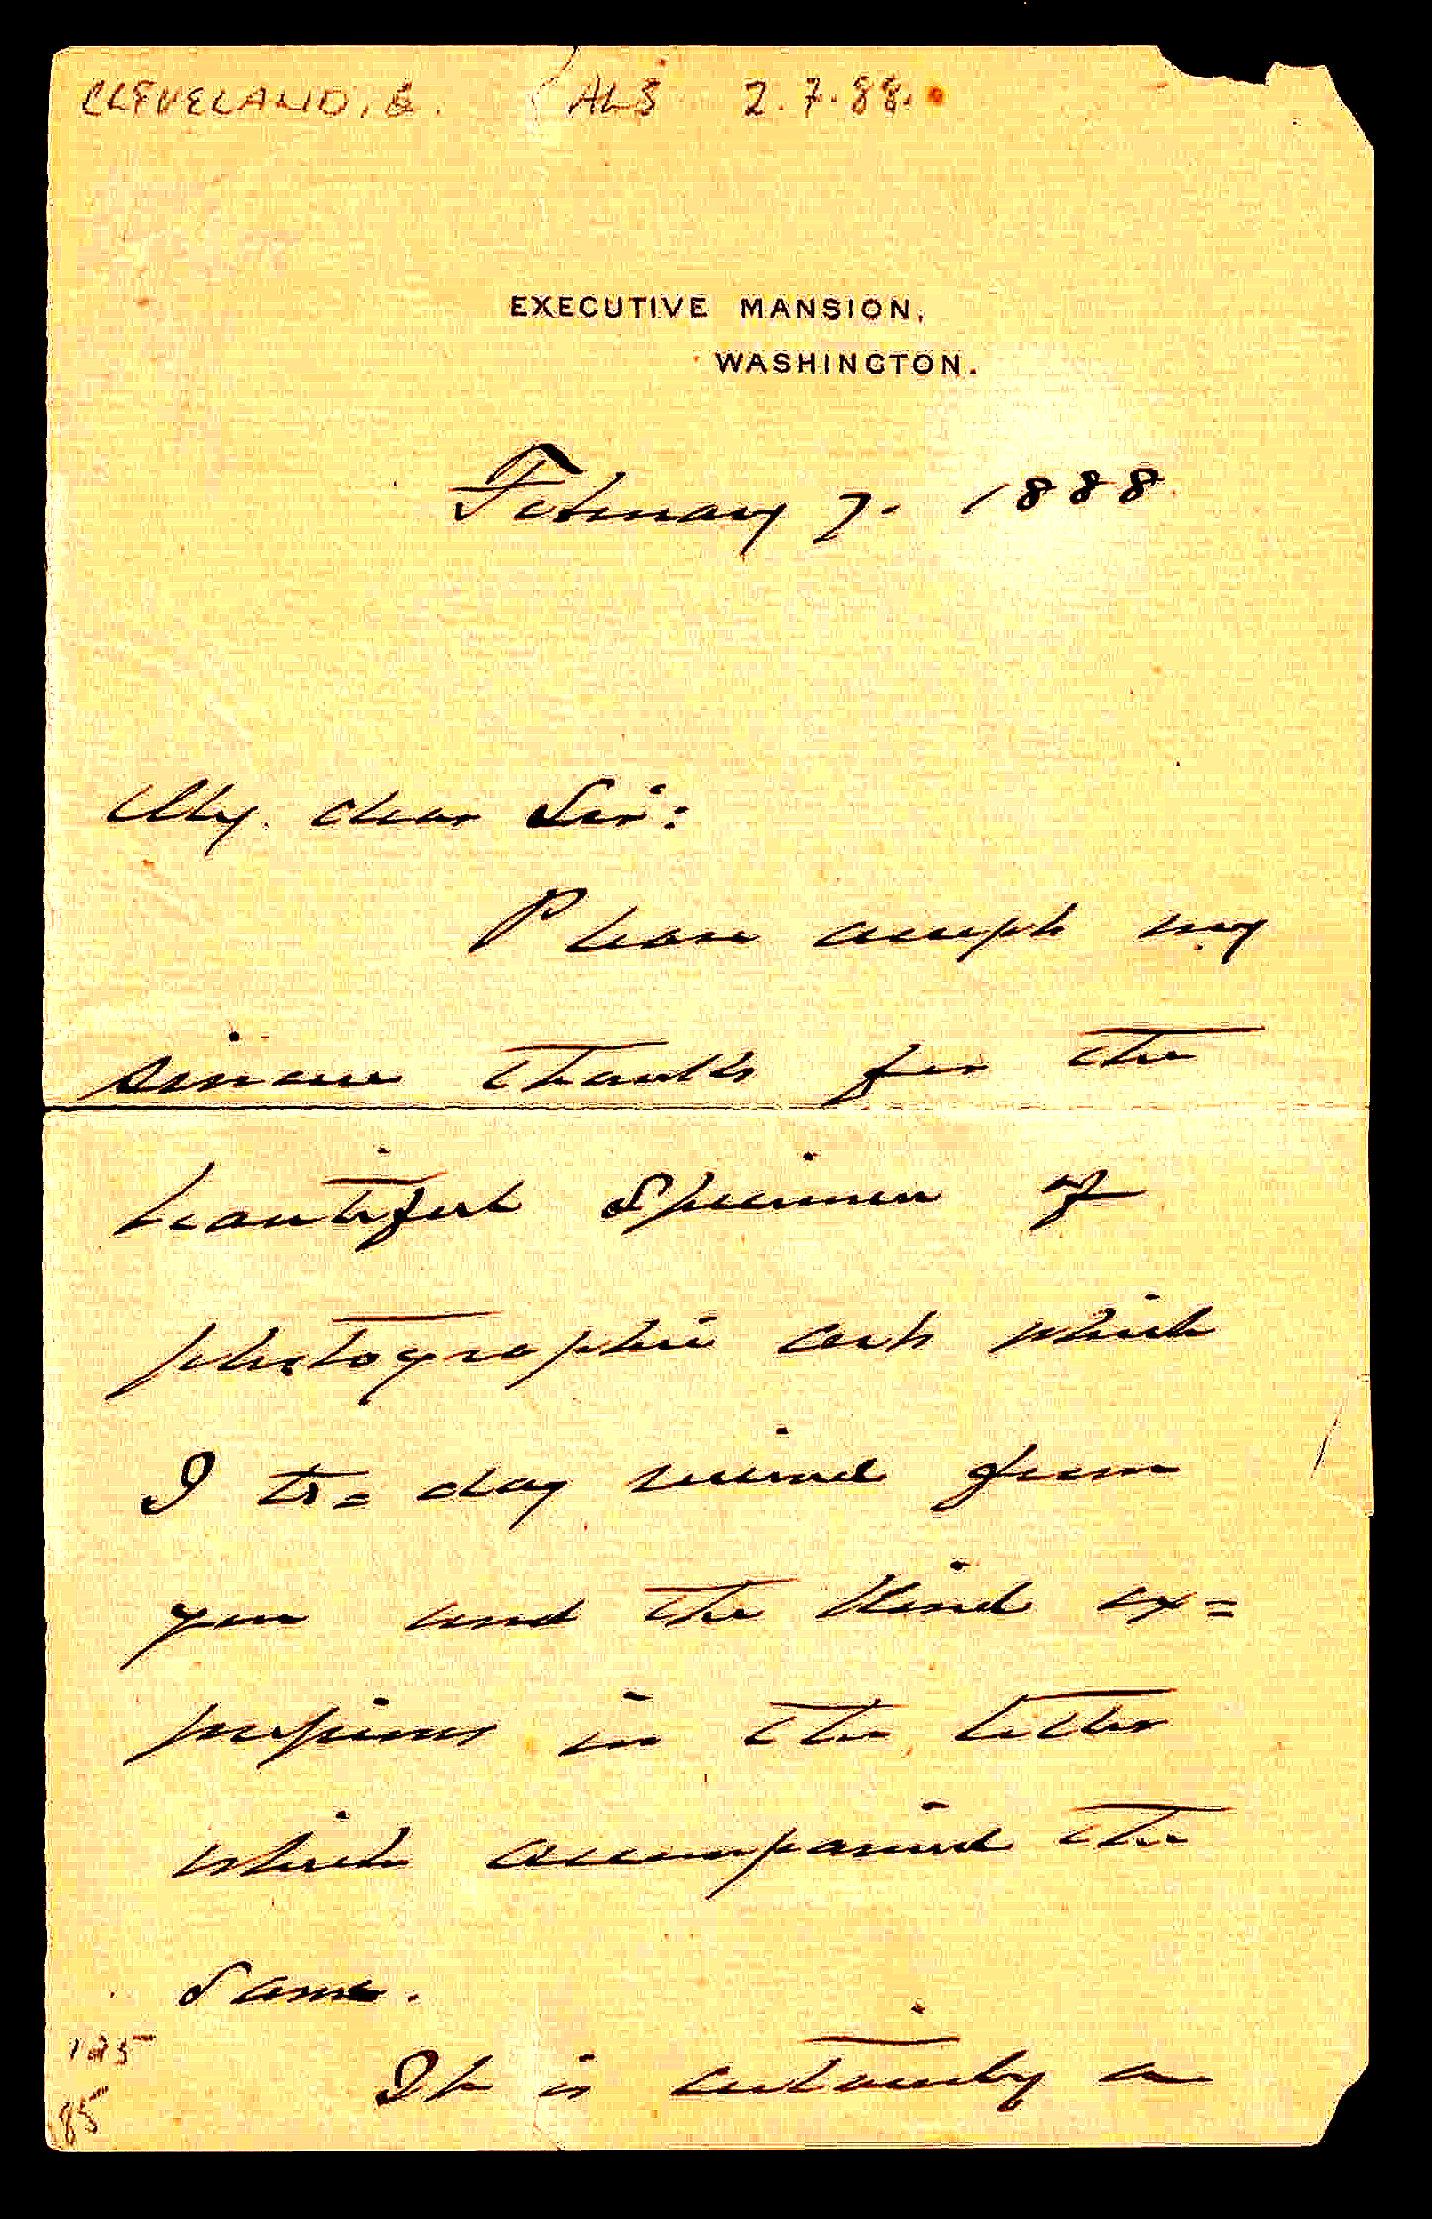 CLEVELAND, G. ALS 2.7.88.
EXECUTIVE MANSION,
WASHINGTON.
February 7. 1888
My dear Sir:
Please accept my
sincere thanks for the
beautiful specimen of
photographic art which
I to=day received from
you and the kind ex=
pressions in the letter
which accompanied the
same.
It is certainly a
125
85